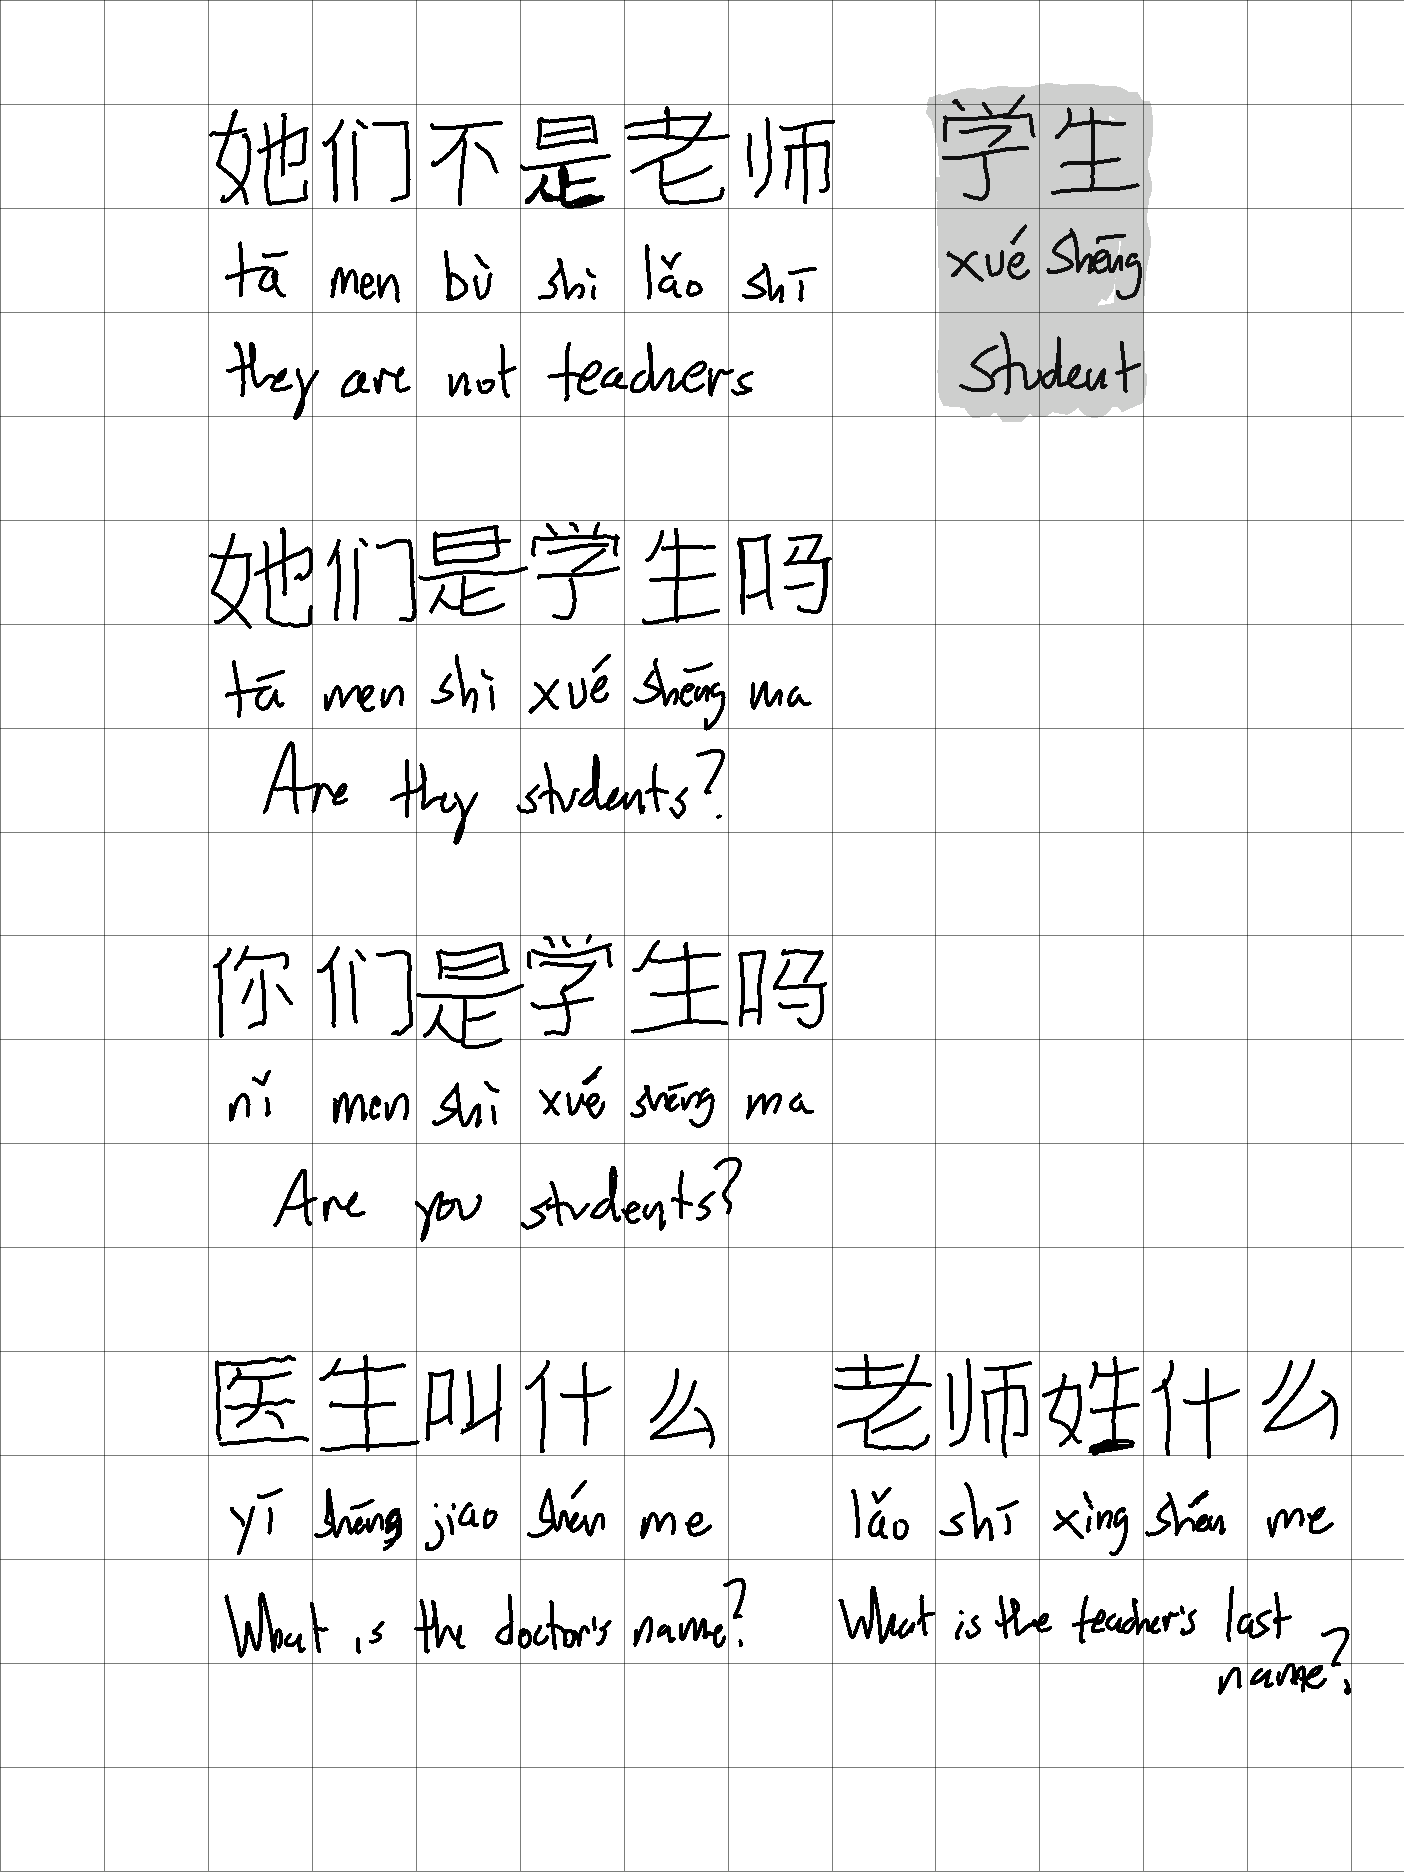 她们不是老师 学生
tā men bù shì lǎo shī xué shēng
they are not teachers student
她们是学生吗
tā men shì xué shēng ma
Are they students?
你们是学生吗
nǐ men shì xué shēng ma
Are you students?
医生叫什么 老师姓什么
yī shēng jiao shén me lǎo shī xìng shén me
What is the doctor's name? What is the teacher's last
name?